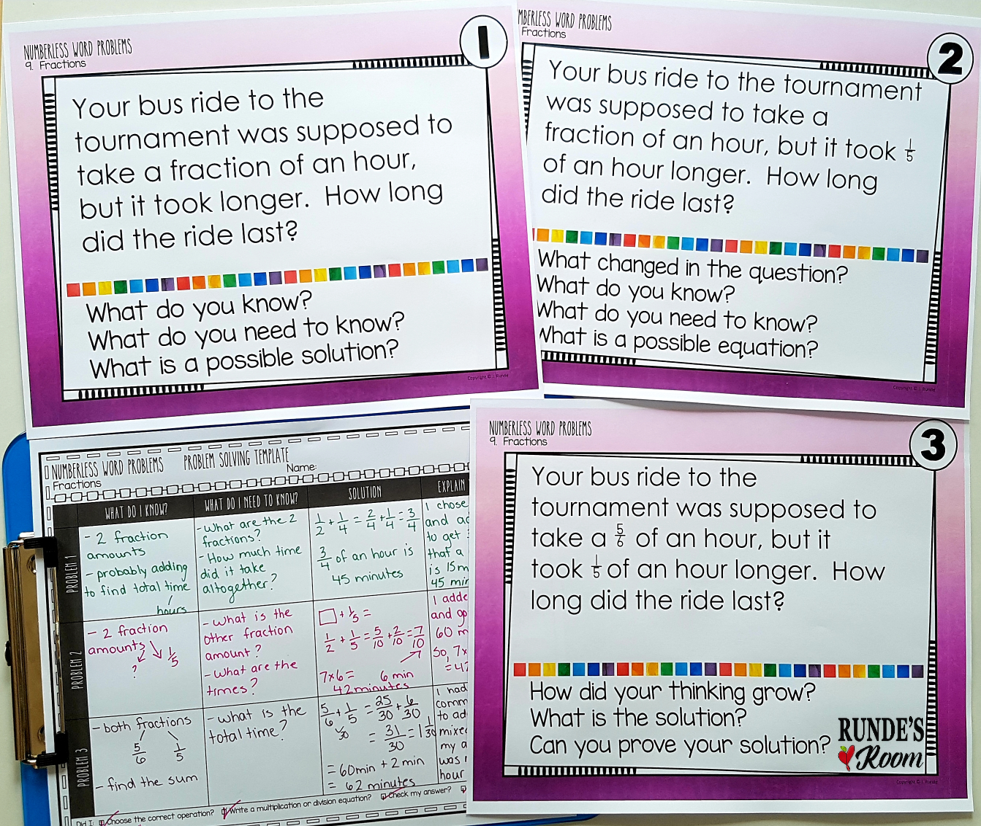 NUMBERLESS WORD PROBLEMS
9. Fractions
1
Your bus ride to the
tournament was supposed to
take a fraction of an hour,
but it took longer. How long
did the ride last?
What do you know?
What do you need to know?
What is a possible solution?
MBERLESS WORD PROBLEMS
Fractions
2
Your bus ride to the tournament
was supposed to take a
fraction of an hour, but it took 1/5
of an hour longer. How long
did the ride last?
What changed in the question?
What do you know?
What do you need to know?
What is a possible equation?
NUMBERLESS WORD PROBLEMS
9. Fractions
3
Your bus ride to the
tournament was supposed to
take a 5/6 of an hour, but it
took 1/5 of an hour longer. How
long did the ride last?
How did your thinking grow?
What is the solution?
Can you prove your solution?
RUNDE'S
Room
NUMBERLESS WORD PROBLEMS PROBLEM SOLVING TEMPLATE
Fractions Name:
WHAT DO I KNOW? WHAT DO I NEED TO KNOW? SOLUTION EXPLAIN
PROBLEM 1
- 2 fraction
amounts
- probably adding
to find total time
hours
- What are the 2
fractions?
- How much time
did it take
altogether?
1/2 + 1/4 = 2/4 + 1/4 = 3/4
3/4 of an hour is
45 minutes
I chose
and ad
to get
that a
is 15m
45 min
PROBLEM 2
- 2 fraction
amounts
? 1/5
- what is the
other fraction
amount?
- What are the
times?
□ + 1/5 =
1/2 + 1/5 = 5/10 + 2/10 = 7/10
7x6 = 6 min
42 minutes
I adde
and go
60 m
So, 7x
= 42
PROBLEM 3
- both fractions
5/6 1/5
- find the sum
- what is the
total time?
5/6 + 1/5 = 25/30 + 6/30
30
= 31/30 = 1 1/30
= 60min + 2 min
= 62 minutes
I had
comm
to ad
mixe
my a
was
hour
Did I: Choose the correct operation? Write a multiplication or division equation? Check my answer?